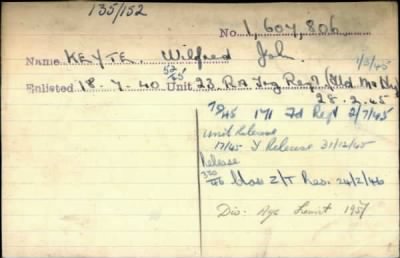 135/152
No. 1,607,806
Name KEYTE. Wilfred Joh. 1/3/45
52/45
Enlisted 18. 7. 40 Unit 23. RA Trg Regt (Fld
28. 2. 45
79/45 171 Fd Regt 2/7/45
Unit Release
17/45 Y Release 31/12/45
Release
330/46 Class Z/T Res. 24/2/46
Dis. Age Limit 1957